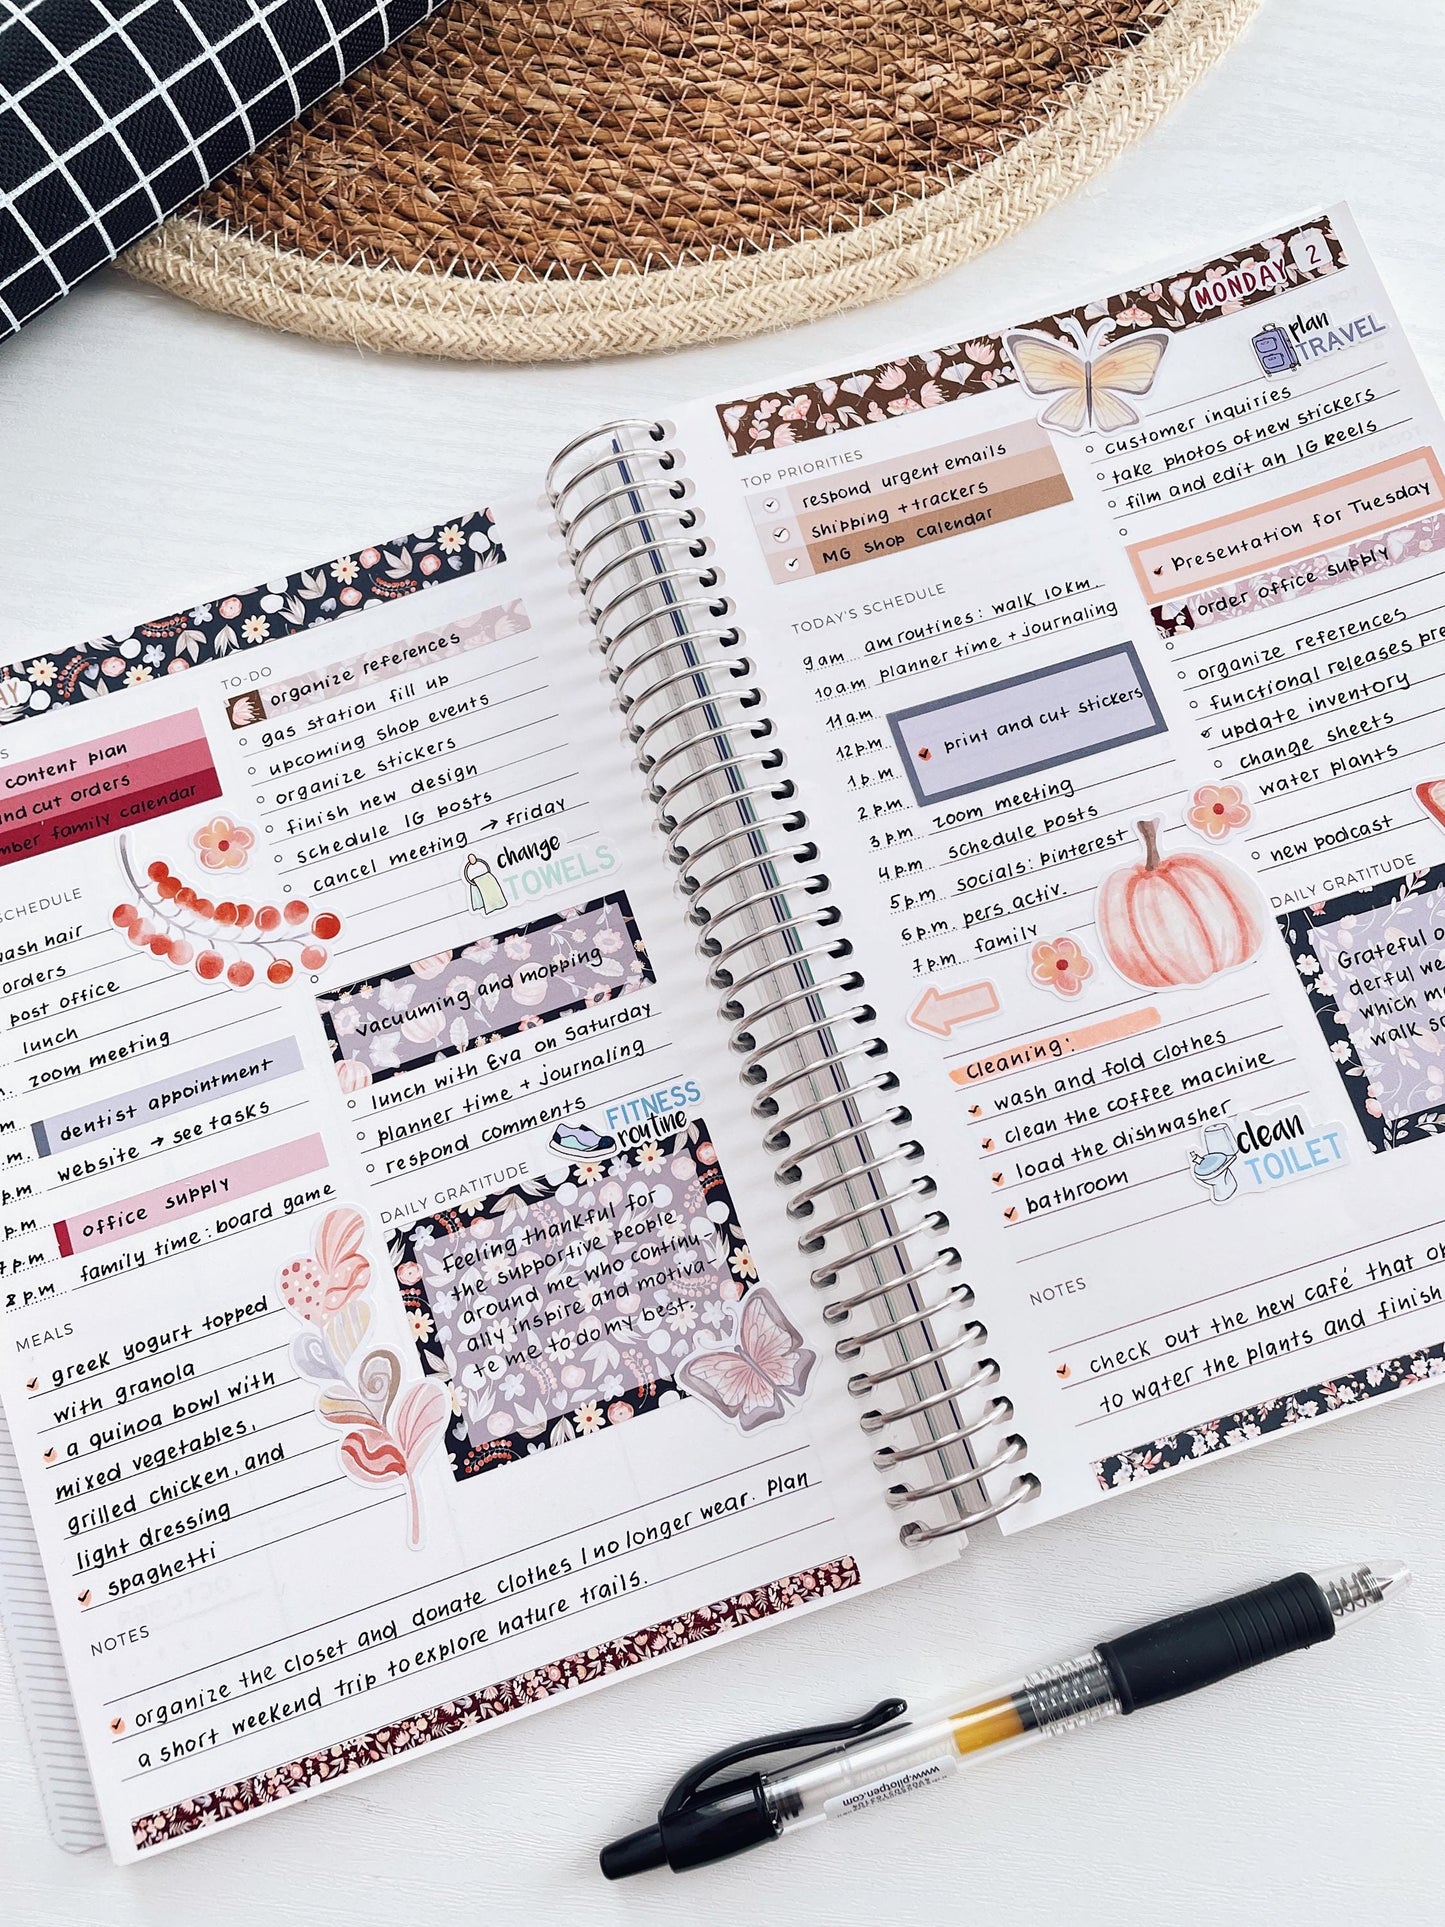 AY
content plan
nd cut orders
mber family calendar
SCHEDULE
ash hair
orders
post office
lunch
zoom meeting
dentist appointment
website → see tasks
office supply
family time: board game
8 p.m.
MEALS
greek yogurt topped
with granola
a quinoa bowl with
mixed vegetables,
grilled chicken, and
light dressing
spaghetti
TO-DO
organize references
gas station fill up
upcoming shop events
organize stickers
finish new design
schedule IG posts
cancel meeting → friday
change
TOWELS
vacuuming and mopping
lunch with Eva on Saturday
planner time + journaling
respond comments
FITNESS
routine
DAILY GRATITUDE
Feeling thankful for
the supportive people
around me who continu-
ally inspire and motiva-
te me to do my best.
NOTES
organize the closet and donate clothes I no longer wear. Plan
a short weekend trip to explore nature trails.
MONDAY 2
TOP PRIORITIES
respond urgent emails
shipping + trackers
MG shop calendar
TODAY'S SCHEDULE
9 am am routines: walk 10km.
10 a.m planner time + journaling
11 a.m
12 p.m print and cut stickers
1 p.m
2 p.m.
3 p.m zoom meeting
4 p.m schedule posts
5 p.m. socials: pinterest
6 p.m. pers. activ.
7 p.m. family
cleaning:
wash and fold clothes
clean the coffee machine
load the dishwasher
bathroom
clean
TOILET
plan
TRAVEL
customer inquiries
take photos of new stickers
film and edit an IG Reels
Presentation for Tuesday
order office supply
organize references
functional releases pre
update inventory
change sheets
water plants
new podcast
DAILY GRATITUDE
Grateful o
derful we
which m
walk s
NOTES
check out the new café that o
to water the plants and finish
www.pilotpen.com